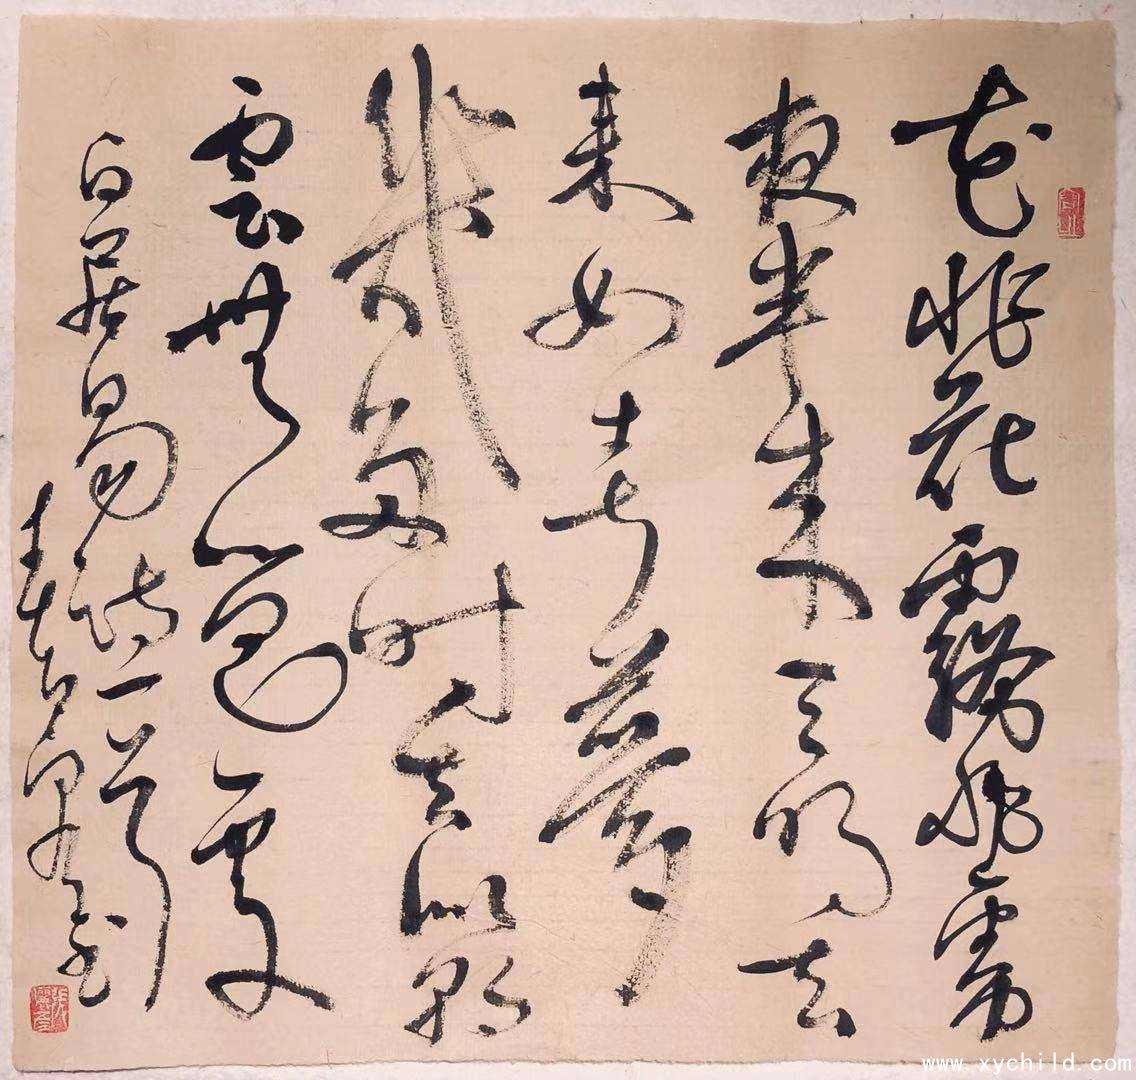 花非花霧非霧
夜半来天明去
来如春夢
幾多时去似朝
雲無覓處
白居易詩一首
www.xychild.com